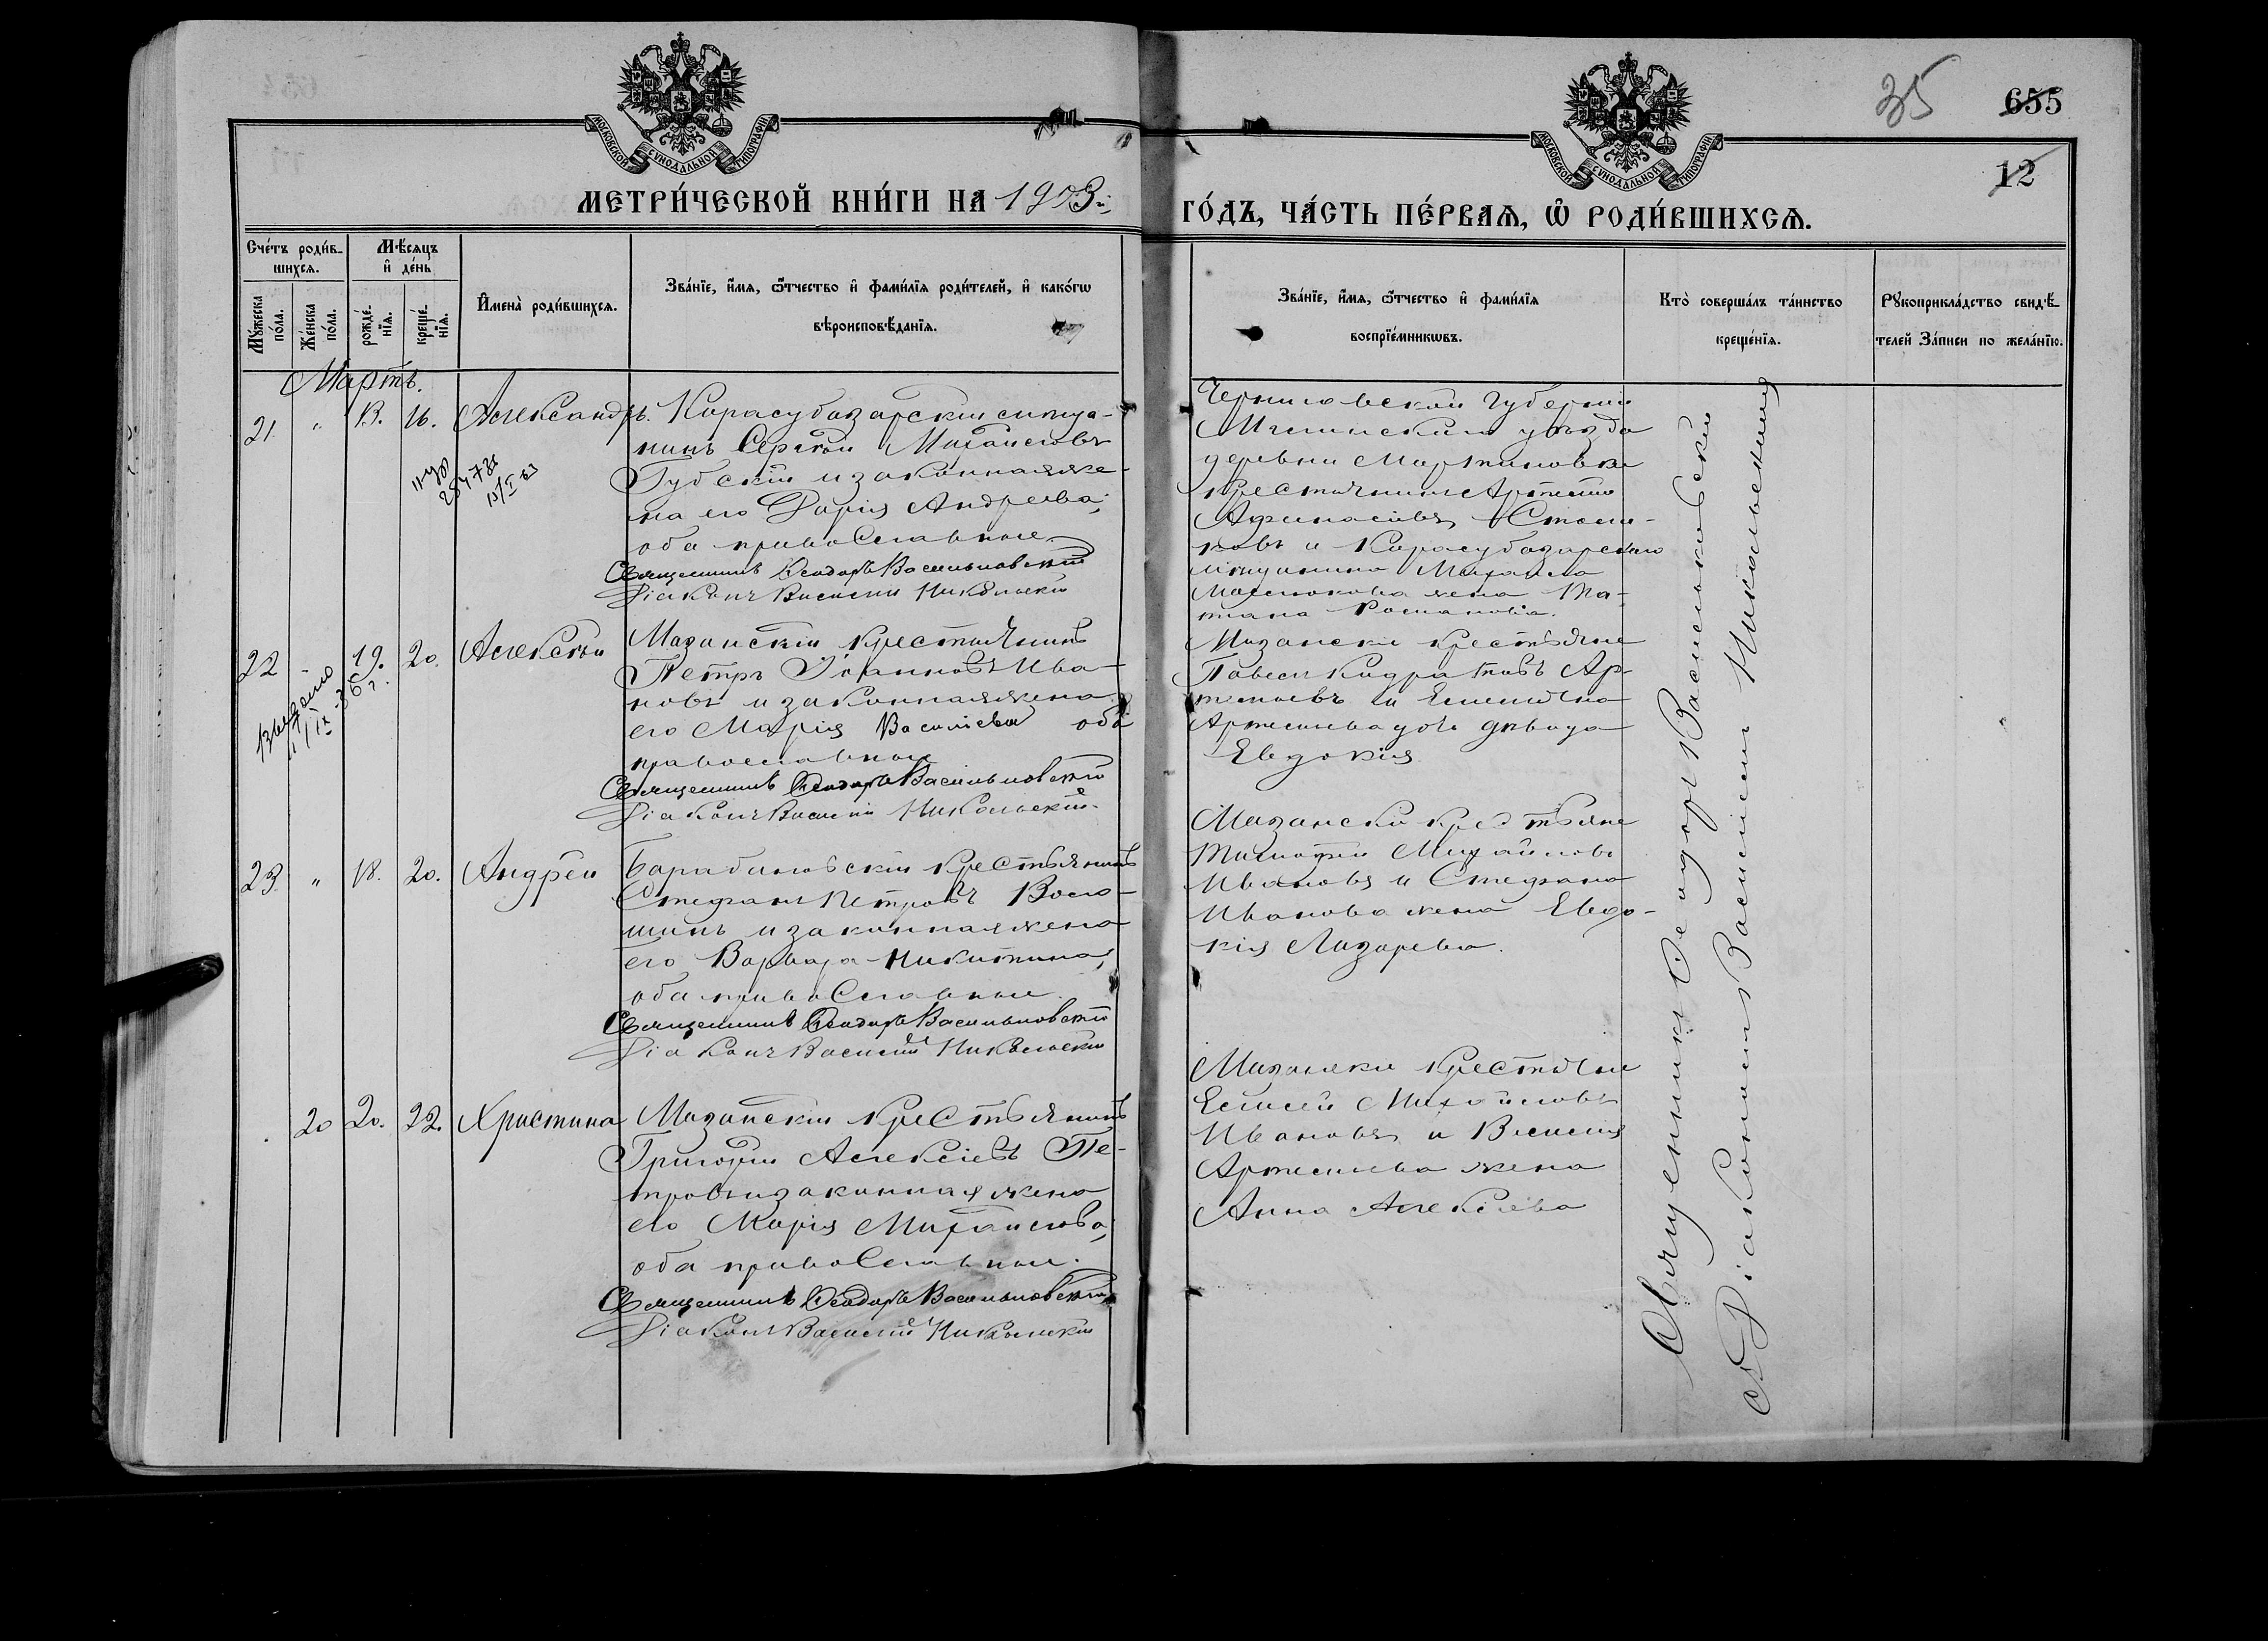 35
655
12
МОСКОВСКОЙ СѴНОДАЛЬНОЙ ТИПОГРАФІИ
МОСКОВСКОЙ СѴНОДАЛЬНОЙ ТИПОГРАФІИ
МЕТРИ́ЧЕСКОЙ КНИ́ГИ НА 1903й
ГО́ДЪ, ЧА́СТЬ ПЕ́РВАѦ, Ѡ҆ РОДИ́ВШИХСѦ.
Сче́тъ роди́в-
шихсѧ.
Мꙋ́жеска по́ла.
Же́нска по́ла.
Мѣ́сѧцъ
и҆ де́нь
рожде́-
нїѧ.
креще́-
нїѧ.
И҆мена̀ роди́вшихсѧ.
Зва́нїе, и҆́мѧ, ѻ҆́тчество и҆ фами́лїѧ роди́телей, и҆ како́гѡ
вѣроисповѣ́данїѧ.
Зва́нїе, и҆́мѧ, ѻ҆́тчество и҆ фами́лїѧ
воспрїе́мникѡвъ.
Кто̀ соверша́лъ та́инство
креще́нїѧ.
Рꙋкоприкла́дство свидѣ́-
телей За́писи по жела́нїю.
Мартъ.
21. " 13. 16. Александръ.
Карасубазарскій мѣща-
нинъ Сергѣй Михайловъ
Губскій и законная же-
на его Дарія Андреева;
оба православные.
Священникъ Ѳеодоръ Васильковскій
Діаконъ Василій Никольскій
Черниговской губерніи
Мглинскаго уѣзда
деревни Мартиновки
крестьянинъ Артемій
Аѳанасіевъ
и Карасубазарскаго
мѣщанина Михаила
жена Та-
тіана Романова.
22 - 19. 20. Алексѣй
Выдано
Мазанскій крестьянинъ
Петръ Іоанновъ Ива-
новъ и законная жена
его Марія Василіева оба
православные
Священникъ Ѳеодоръ Васильковскій
Діаконъ Василій Никольскій.
Мазанскіе крестьяне
Павелъ Кодратовъ Ар-
темьевъ и
Артемьева дочь дѣвица
Евдокія
23. " 18. 20. Андрей
Барабановскій крестьянинъ
Стефанъ Петровъ Воло-
шинъ и законная жена
его Варвара Никитина;
оба православные.
Священникъ Ѳеодоръ Васильковскій
Діаконъ Василій Никольскій
Мазанскіе крестьяне
Тимофей Михайловъ
Ивановъ и Стефана
Иванова жена Евдо-
кія Лазарева.
20 20. 22. Христина
Мазанскій крестьянинъ
Григорій Алексіевъ Пе-
тровъ и законная жена
его Марія Михайлова;
оба православные.
Священникъ Ѳеодоръ Васильковскій
Діаконъ Василій Никольскій
Мазанскіе крестьяне
Елисей Михайловъ
Ивановъ и Василія
Артемьева жена
Анна Алексіева
Священникъ Ѳеодоръ Васильковскій
Діаконъ Василій Никольскій